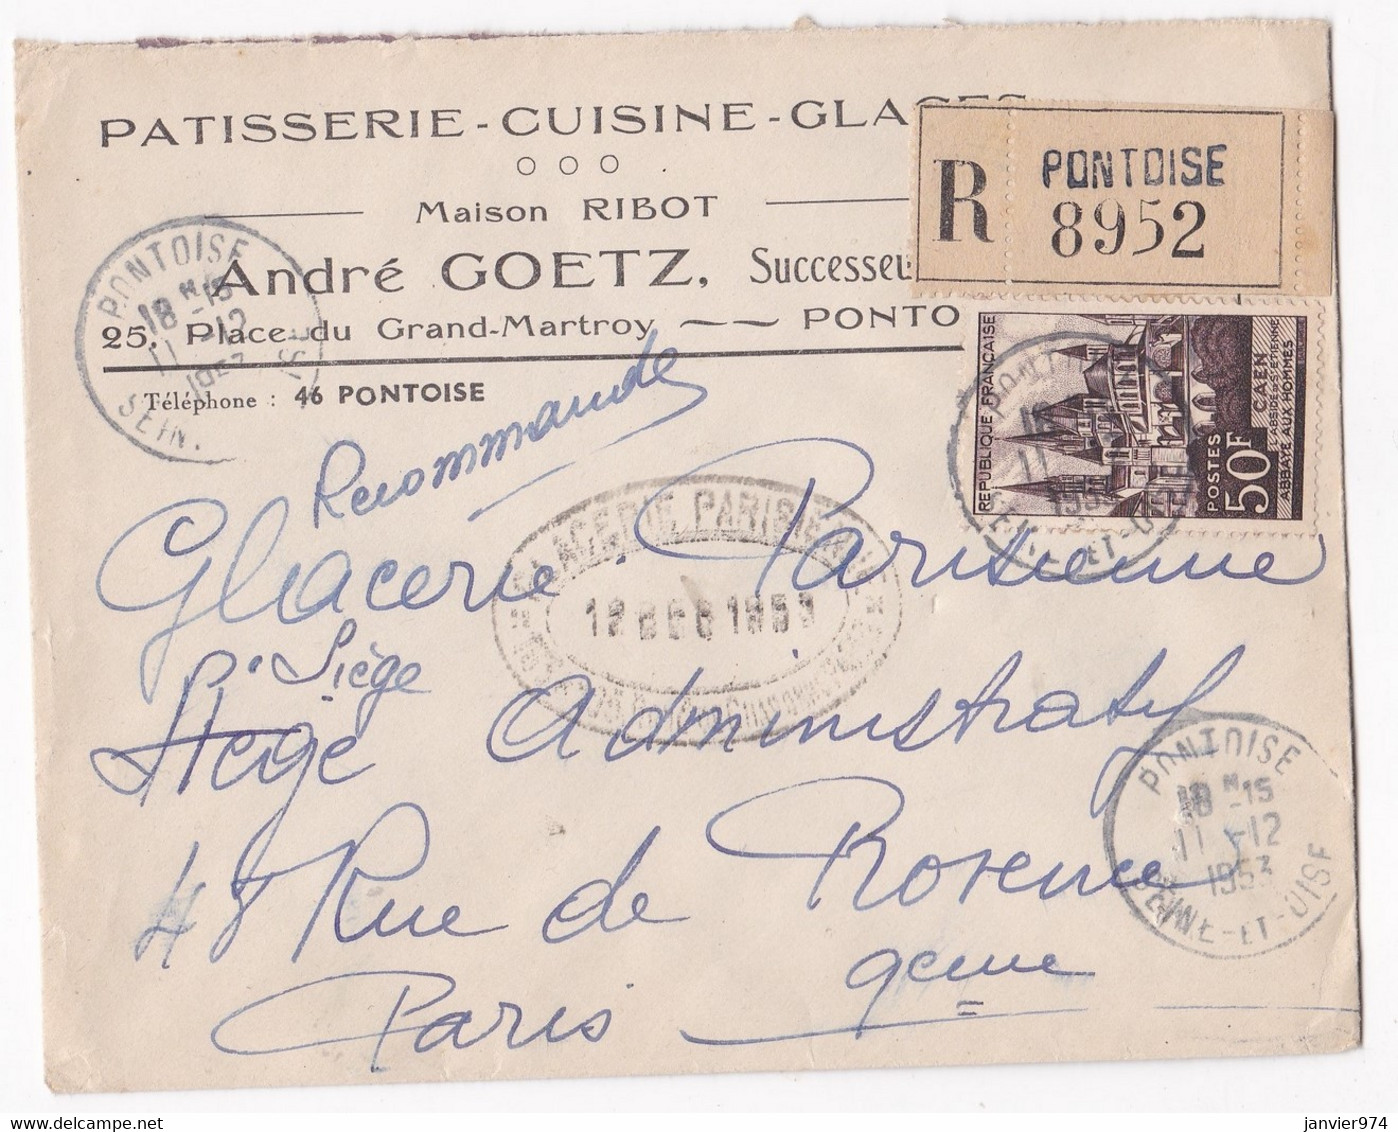 PATISSERIE - CUISINE - GLACES
Maison RIBOT
André GOETZ, Successeu
25, Place du Grand-Martroy —— PONTO
Téléphone : 46 PONTOISE
R PONTOISE
8952
REPUBLIQUE FRANÇAISE
POSTES 50F
CAEN
ABSIDE DE St ETIENNE
ABBAYE AUX HOMMES
PONTOISE
18H-15
11-12
SEIN.
PONT
11
1953
SEINE-ET-OISE
Recommandé
GLACERIE PARISIENNE
12 DEC 1953
Glacerie Parisienne
Siège
Administratif
48 Rue de
Paris 9eme
PONTOISE
18H-15
11-12
1953
SEINE-ET-OISE
janvier974